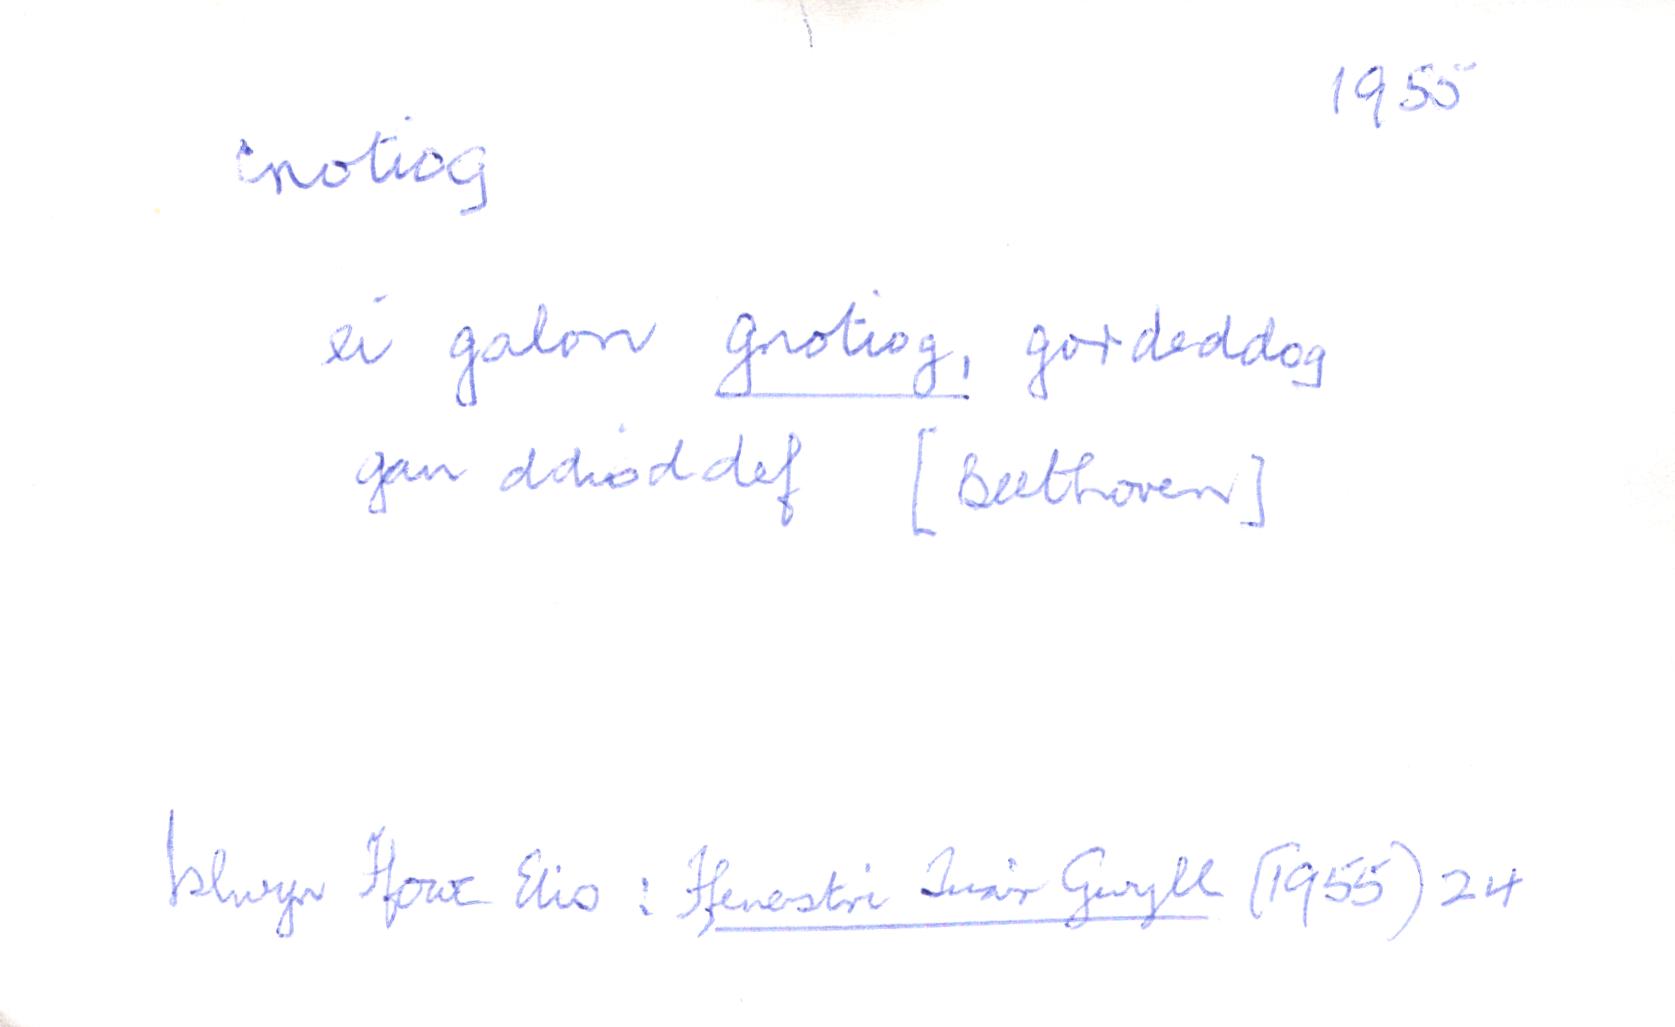 1955
cnotiog
ei galon gnotiog, gordeddog
gan ddioddef [Beethoven]
Islwyn Ffowc Elis : Ffenestri Tua'r Gwyll (1955) 24